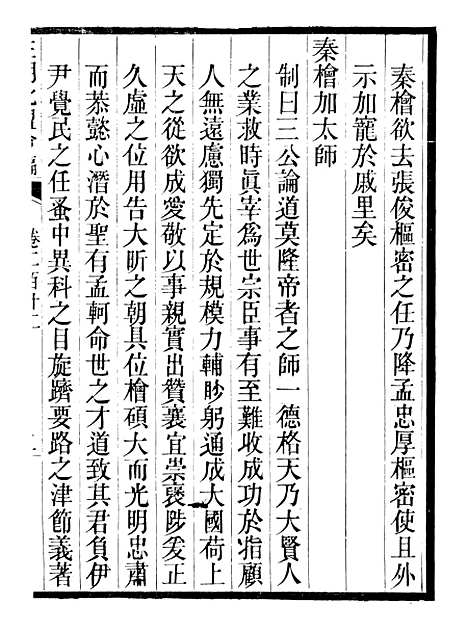 秦檜欲去張俊樞密之任乃降孟忠厚樞密使且外
示加寵於戚里矣
秦檜加太師
制曰三公論道莫隆帝者之師一德格天乃大賢人
之業救時眞宰爲世宗臣事有至難收成功於指顧
人無遠慮獨先定於規模力輔眇躬通成大國荷上
天之從欲成愛敬以事親實出贊襄宜崇褒陟爰正
久虛之位用告大昕之朝具位檜碩大而光明忠肅
而恭懿心潛於聖有孟軻命世之才道致其君負伊
尹覺民之任蚤中異科之目旋躋要路之津節義著
三朝北盟會編
卷二百十二